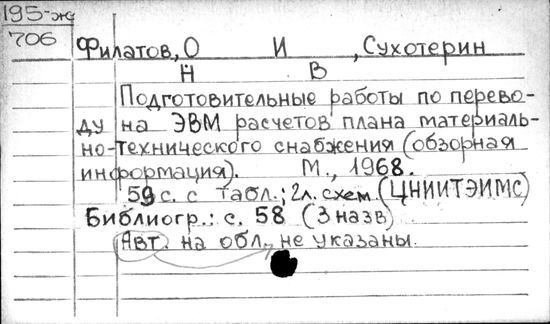 195-ж
706
Филатов, О И , Сухотерин
Н В
Подготовительные работы по перево-
ду на ЭВМ расчетов плана материаль-
но-технического снабжения (обзорная
информация). М., 1968.
59 с. с табл.; 2 л. схем. (ЦНИИТЭИМС)
Библиогр.: с. 58 (3 назв)
Авт. на обл., не указаны.